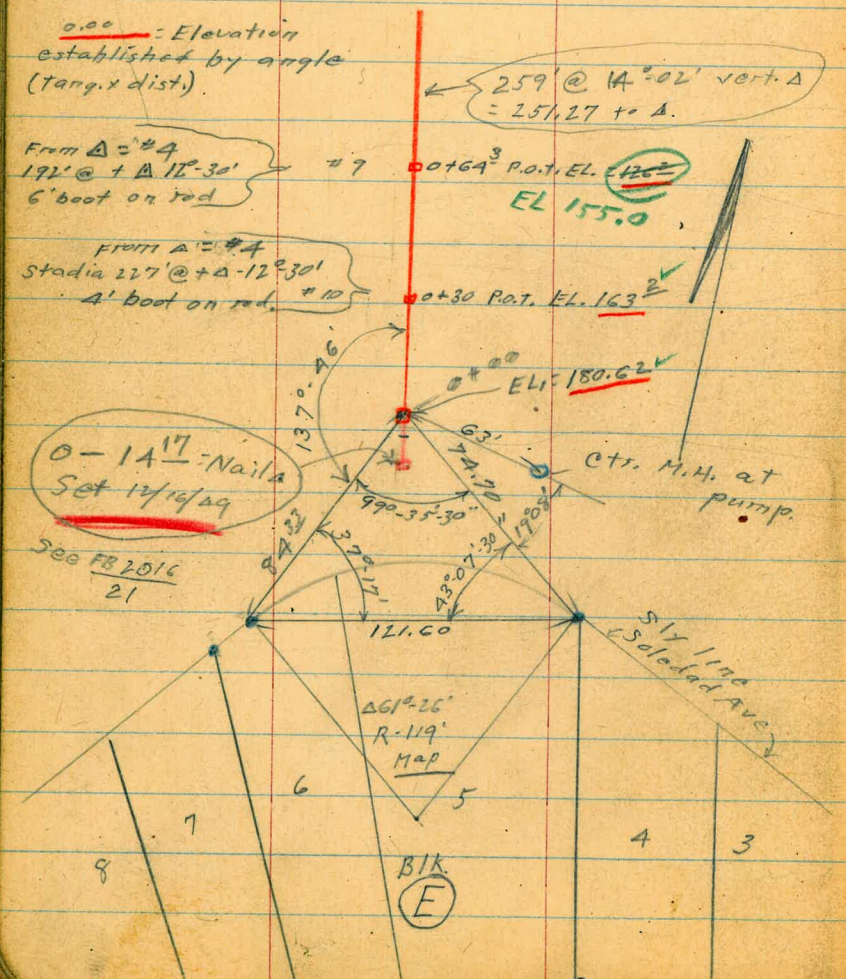 0.00 = Elevation
established by angle
(tang. x dist.)
259' @ 14°-02' vert. Δ
= 251.27 to Δ.
From Δ = #4
192' @ + Δ 12°-30'
6' boot on rod
#9
0+64³ P.O.T. EL. = 126²
EL 155.0
From Δ = #4
Stadia 227' @ + Δ - 12°-30'
4' boot on rod.
#10
0+30 P.O.T. EL. 163²
137°-46'
0+00
EL. = 180.62
63'
74.70
Ctr. M.H. at
pump.
0 - 14¹⁷ = Nail
Set 12/16/49
99°-35'-30"
19°08'
See FB 2016
21
84³³
37°-17'
43°-07'-30"
121.60
Sly line
Soledad Ave
Δ61°-26'
R-119'
Map
8
7
6
5
4
3
Blk.
E